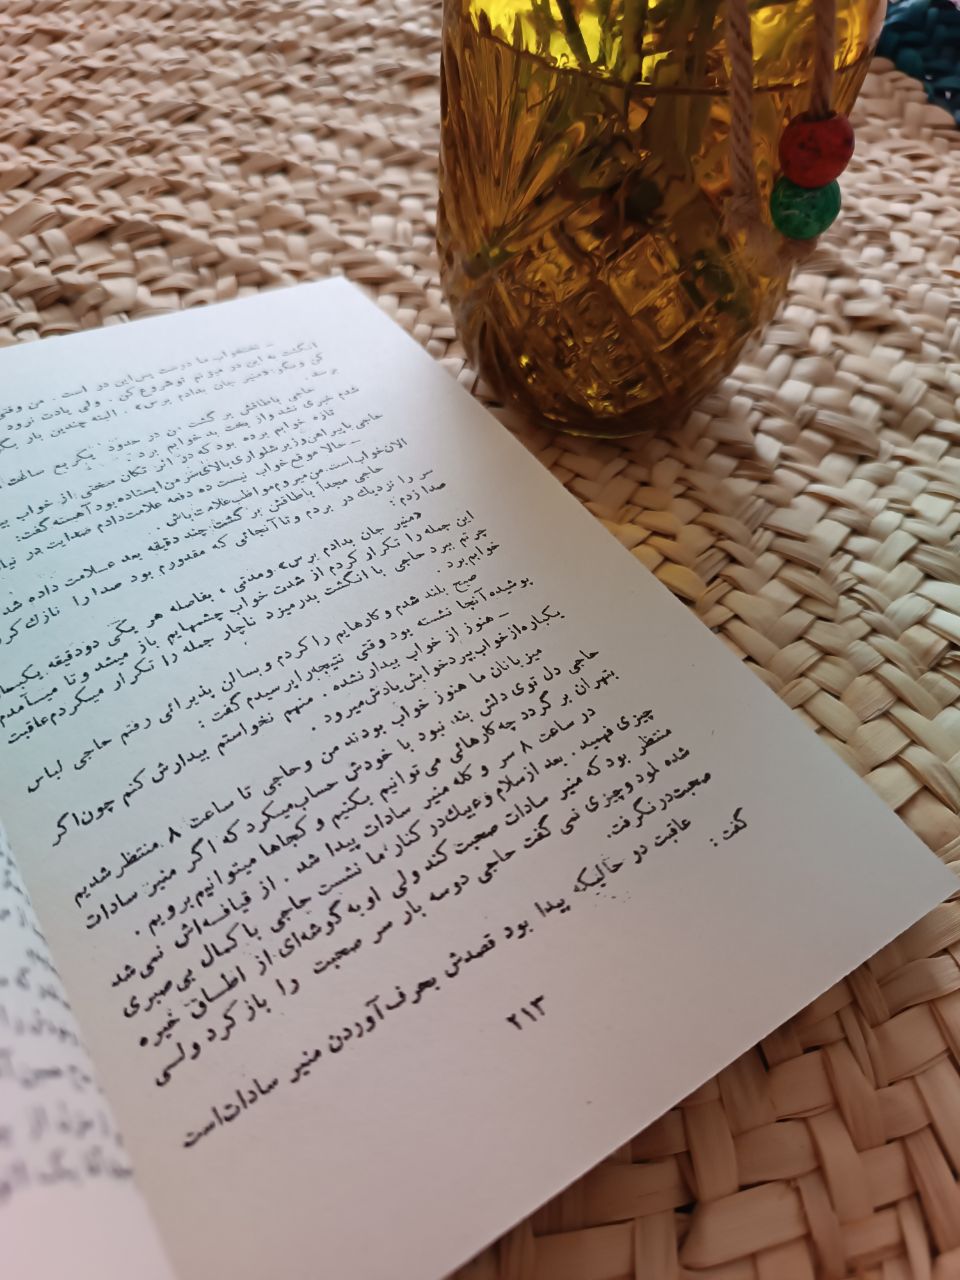 ـ تختخواب ما درست پس این در است . من وقتی
انگشت به این در میزنم تو شروع کن . ولی یادت نرود
کن وبگو: «منیر جان بدادم برس» . البته چندین بار
برسد .
حاجی باطاقش بر گشت من در حدود یکربع ساعت
شدم خبری نشد واز بخت بد خوابم برد.
تازه خوابم برده بود که در اثر تکان سختی از خواب
حاجی باپیراهن‌وزیرشلواری‌بالای‌سر من ایستاده بود آهسته گفت:
ـ حالا موقع خواب نیست ده دفعه علامت‌دادم صدایت در
الان‌خواب‌است.من‌میروم‌مواظب‌علامت‌باش .
حاجی مجددا باطاقش بر گشت چند دقیقه بعد عـلامت داده شد
سر را نزدیك در بردم و تا آنجائی که مقدورم بود صدا را نازك
صدا زدم :
«منیر جان بدادم برس» ومدتی ، بفاصله هر یکی دودقیقه
این جمله را تکرار کردم از شدت خواب چشمهایم باز میشد و تا میـآمدم
چرتم ببرد حاجی با انگشت بدرمیزد ناچار جمله را تکرار میکردم‌عاقبت
خوابم‌برد .
صبح بلند شدم و کارهایم را کردم و بسالن پذیرائی رفتم حاجی لباس
پوشیده آنجا نشسته بود وقتی نتیجه‌راپرسیدم گفت :
ـ هنوز از خواب بیدار نشده . منهم نخواستم بیدارش کنم چون‌اگر
یکباره‌ازخواب‌بپردخوابش‌یادش‌میرود .
میزبانان ما هنوز خواب بودند من وحاجی تا ساعت ۸ منتظرشدیم
حاجی دل توی دلش بند نبود با خودش حساب‌میکرد که اگر منیر سادات
بتهران بر گردد چه‌کارهائی می توانیم بکنیم و کجاها میتوانیم‌برویم .
در ساعت ۸ سر و کله منیر سادات پیدا شد . از قیافـه‌اش نمی‌شد
چیزی فهمید . بعد ازسلام و علیك‌در کنار ما نشست حاجی با کمال بی‌صبری
منتظر بود که منیر سادات صحبت کند ولی او به گوشه‌ای از اطـاق خیره
شده بود و چیزی نمی گفت حاجی دوسه بار سر صحبت را باز کرد ولـی
صحبت‌درنگرفت.
عاقبت در حالیکه پیدا بود قصدش بحرف‌آوردن منیر سادات‌است
گفت :
۲۱۳